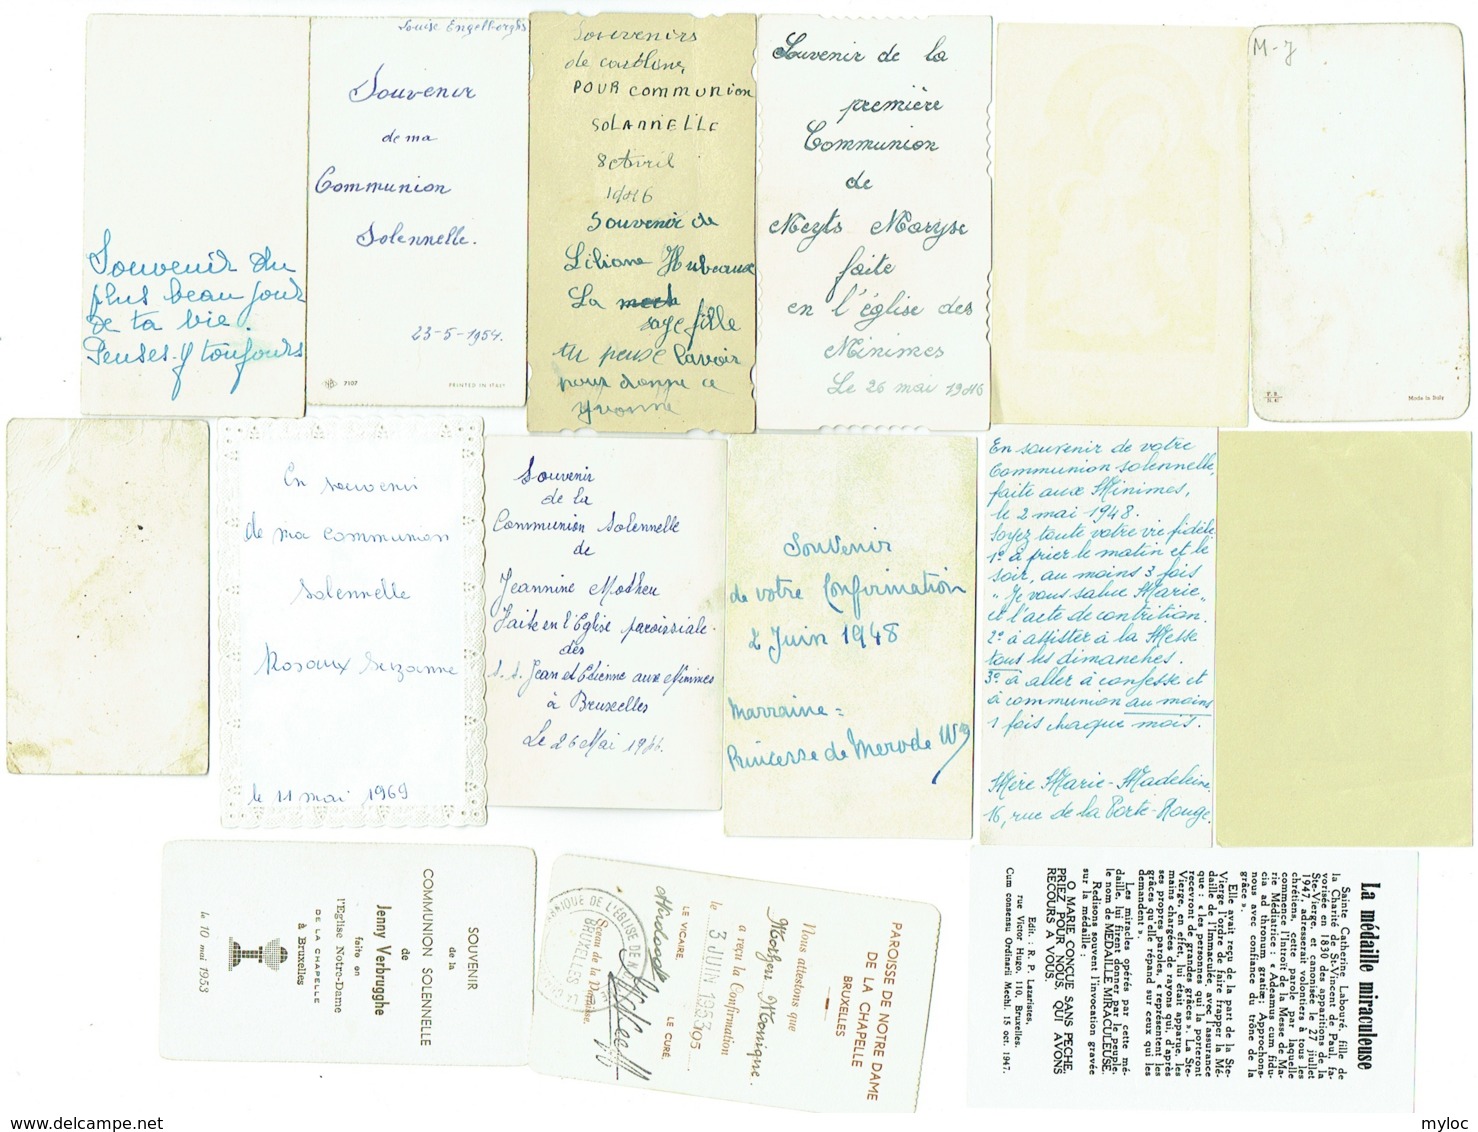 Souvenir du
plus beau jour
de ta vie.
Penses-y toujours
Louise Engelborghs
Souvenir
de ma
Communion
Solennelle.
23-5-1954.
7107
PRINTED IN ITALY
Souvenirs
de
POUR COMMUNION
SOLANNELLE
8 Avril
1946
Souvenir de
Liliane Hubeaux
La
sage fille
tu peuse lavoir
pour donne ce
yvonne
Souvenir de la
première
Communion
de
Meyts Maryse
faite
en l'église des
Minimes
Le 26 mai 1946
M-J
Made in Italy
En souvenir
de ma communion
Solennelle
Rosaux Suzanne
le 11 mai 1969
Souvenir
de la
Communion Solennelle
de
Jeannine Matheu
Faite en l'Eglise paroissiale
des
S. S. Jean et Etienne aux Minimes
à Bruxelles
Le 26 Mai 1946.
Souvenir
de votre Confirmation
2 Juin 1948
Marraine =
Princesse de Merode
En souvenir de votre
Communion solennelle,
faite aux Minimes,
le 2 mai 1948.
Soyez toute votre vie fidèle
1° à prier le matin et le
soir, au moins 3 fois
„Je vous salue Marie"
et l'acte de contrition.
2° à assister à la Messe
tous les dimanches.
3° à aller à confesse et
à communion au moins
1 fois chaque mois.
Mère Marie-Madeleine
16, rue de la Porte-Rouge.
SOUVENIR
de la
COMMUNION SOLENNELLE
de
Jenny Verbrugghe
faite en
l'Eglise Notre-Dame
DE LA CHAPELLE
à Bruxelles
le 10 mai 1953
PAROISSE DE NOTRE DAME
DE LA CHAPELLE
BRUXELLES
Nous attestons que
Monique
a reçu la Confirmation
le 3 JUIN 1953
LE VICAIRE, LE CURÉ,
Sceau de la Paroisse.
La médaille miraculeuse
Sainte Catherine Labouré, fille de
la Charité de St-Vincent de Paul, fa-
vorisée en 1830 des apparitions de la
Ste-Vierge, et canonisée le 27 juillet
1947, adresserait volontiers à tous les
chrétiens, cette parole par laquelle
commence l'Introït de la Messe de Ma-
rie Médiatrice : « Adeamus cum fidu-
cia ad thronum gratiæ; Approchons-
nous avec confiance du trône de la
grâce ».
Elle avait reçu de la part de la Ste-
Vierge l'ordre de faire frapper la Mé-
daille de l'Immaculée, avec l'assurance
que : « les personnes qui la portent
recevront de grandes grâces ». La Ste-
Vierge, en effet, lui était apparue, les
mains chargées de rayons qui, d'après
ses propres paroles, « représentent les
grâces qu'elle répand sur ceux qui les
demandent ».
Les miracles opérés par cette mé-
daille, lui firent donner par le peuple,
le nom de MEDAILLE MIRACULEUSE.
Redisons souvent l'invocation gravée
sur la médaille :
O MARIE CONÇUE SANS PECHE,
PRIEZ POUR NOUS, QUI AVONS
RECOURS A VOUS.
Edit. : R. P. Lazaristes,
rue Victor Hugo, 110, Bruxelles.
Cum consensu Ordinarii Mechl. 15 oct. 1947.
myloc